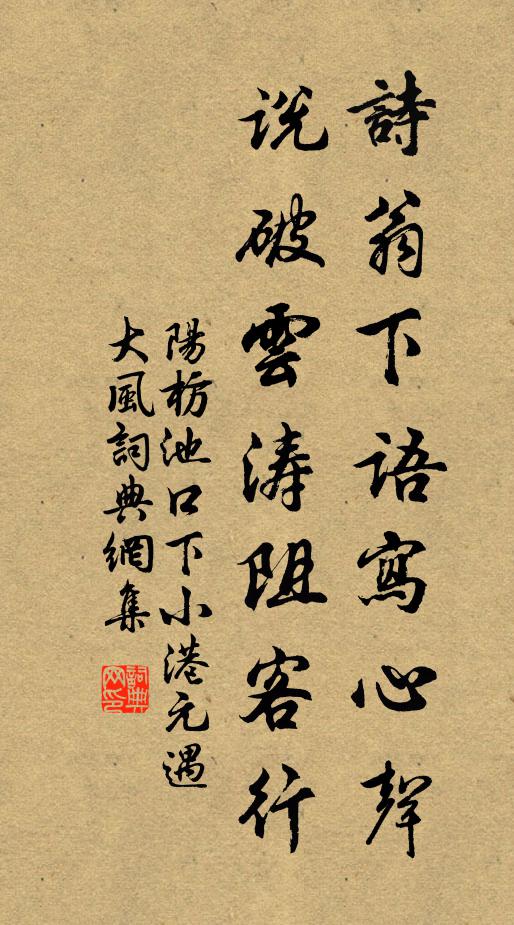 詩翁下語寫心聲
説破雲涛阻客行
陽枋池口下小港元遇
大風詞典網集
詞典网印